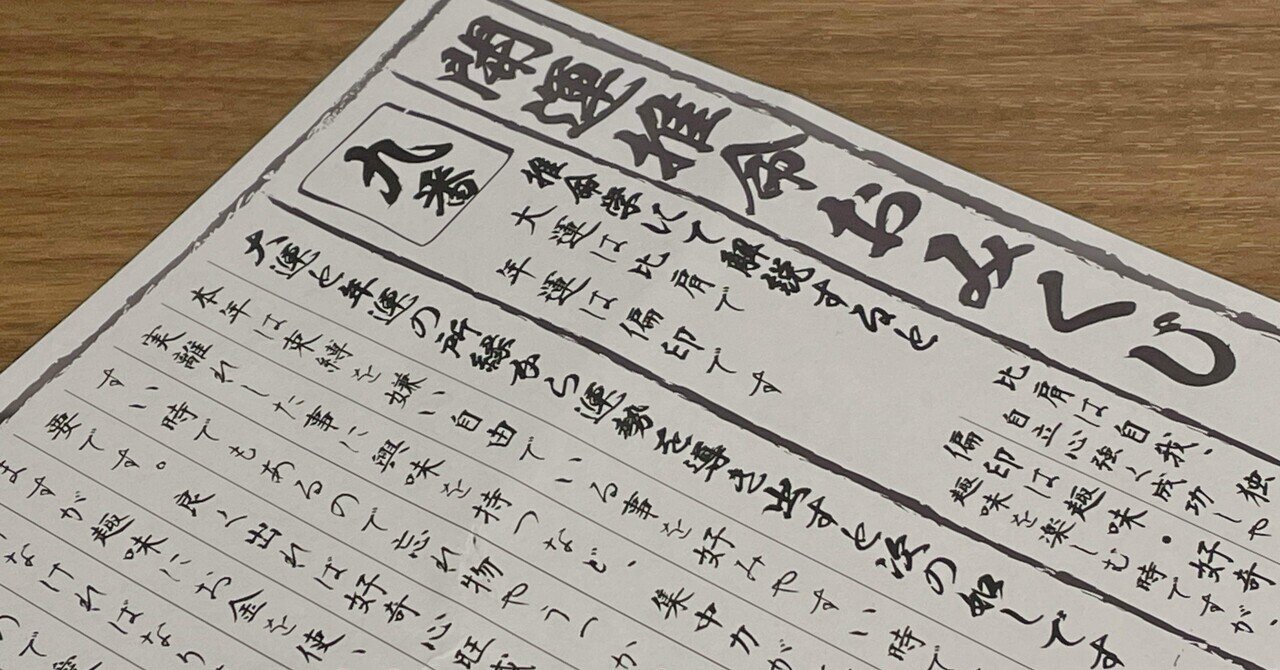 開運推命おみくじ
九番
推命学にて解説すると
大運は比肩で
年運は偏印です
比肩は自我、独
自立心強く成功しや
偏印は趣味・好奇
趣味を楽しむ時ですが、
大運と年運の所縁から運勢を導き出すと次の如しです
本年は束縛を嫌い自由でいる事を好みやすい時
実離れした事に興味を持つなど、集中力が
すい時でもあるので忘れ物やうっか
要です。良く出れば好奇心旺盛
ますが趣味にお金を使い、
なければなり